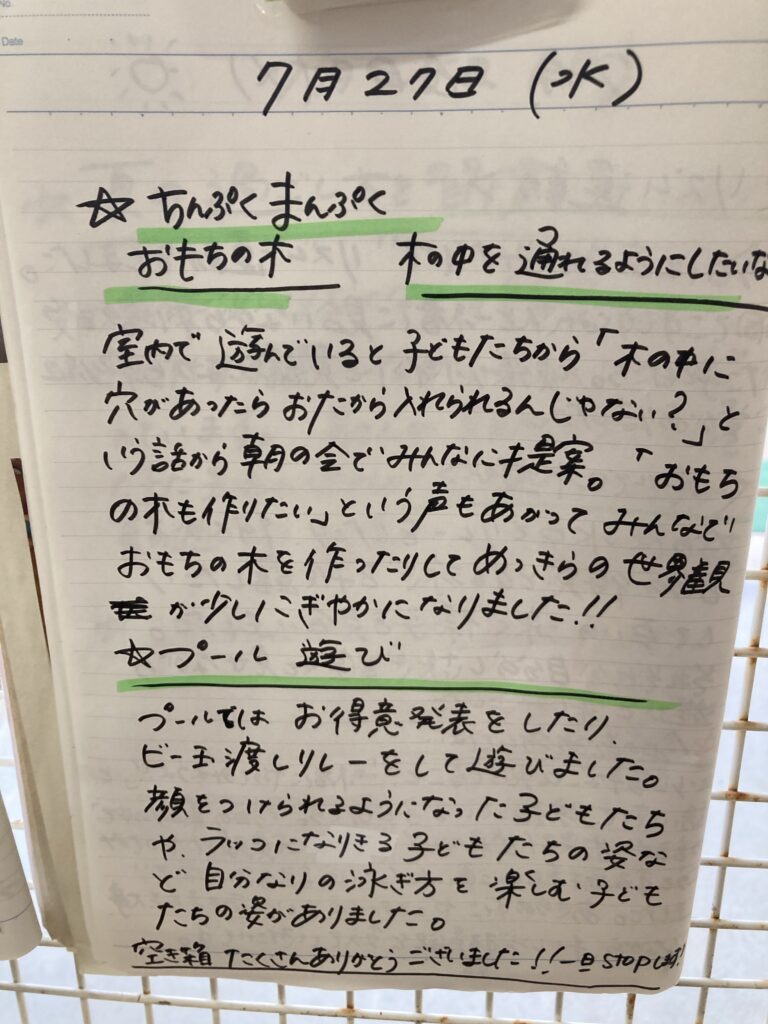 No.
Date
7月27日(水)
☆ ちんぷくまんぷく
おもちの木 木の中を通れるようにしたいな
室内で遊んでいると子どもたちから「木の中に
穴があったらおたから入れられるんじゃない?」と
いう話から朝の会でみんなに提案。「おもち
の木も作りたい」という声もあがってみんなで
おもちの木を作ったりしてめっきらの世界観
が少しにぎやかになりました!!
☆プール遊び
プールではお得意発表をしたり、
ビー玉渡しリレーをして遊びました。
顔をつけられるようになった子どもたち
や、ラッコになりきる子どもたちの姿な
ど自分なりの泳ぎ方を楽しむ子ども
たちの姿がありました。
空き箱たくさんありがとうございました!!一旦STOPします!